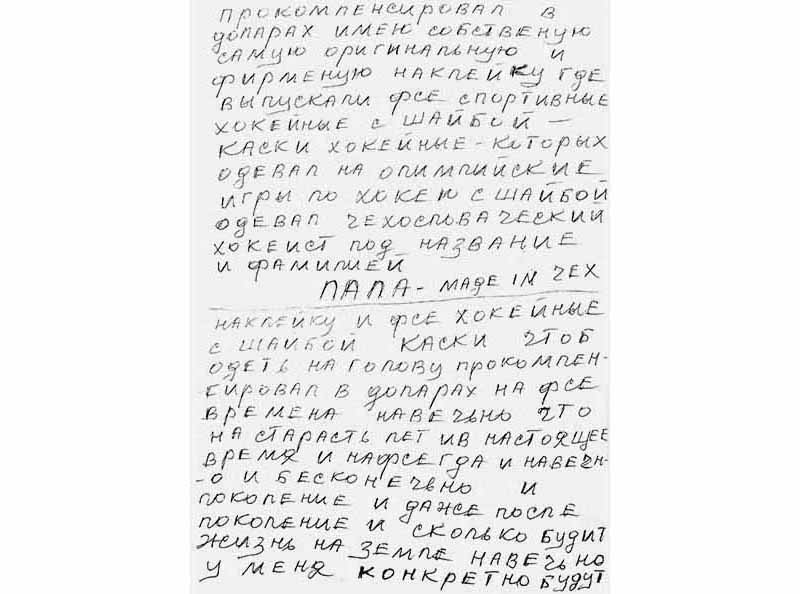 ПРОКОМПЕНСИРОВАЛ В
ДОЛАРАХ ИМЕЮ СОБСТВЕНУЮ
САМУЮ ОРИГИНАЛЬНУЮ И
ФИРМЕНУЮ НАКЛЕЙКУ ГДЕ
ВЫПУСКАЛИ ФСЕ СПОРТИВНЫЕ
ХОКЕЙНЫЕ С ШАЙБОЙ —
КАСКИ ХОКЕЙНЫЕ - КОТОРЫХ
ОДЕВАЛ НА ОЛИМПИЙСКИЕ
ИГРЫ ПО ХОКЕЮ С ШАЙБОЙ
ОДЕВАЛ ЧЕХОСЛОВАЧЕСКИЙ
ХОКЕИСТ ПОД НАЗВАНИЕ
И ФАМИЛИЕЙ
ЛАЛА - MADE IN ЧЕХ
НАКЛЕЙКУ И ФСЕ ХОКЕЙНЫЕ
С ШАЙБОЙ КАСКИ ЧТОБ
ОДЕТЬ НА ГОЛОВУ ПРОКОМПЕН-
СИРОВАЛ В ДОЛАРАХ НА ФСЕ
ВРЕМЕНА НАВЕЧЬНО ЧТО
НА СТАРАСТЬ ЛЕТ И В НАСТОЯЩЕЕ
ВРЕМЯ И НАФСЕГДА И НАВЕЧН-
-О И БЕСКОНЕЧЬНО И
ПОКОЛЕНИЕ И ДАЖЕ ПОСЛЕ
ПОКОЛЕНИЕ И СКОЛЬКО БУДИТ
ЖИЗНЬ НА ЗЕМЛЕ НАВЕЧЬНО
У МЕНЯ КОНКРЕТНО БУДУТ